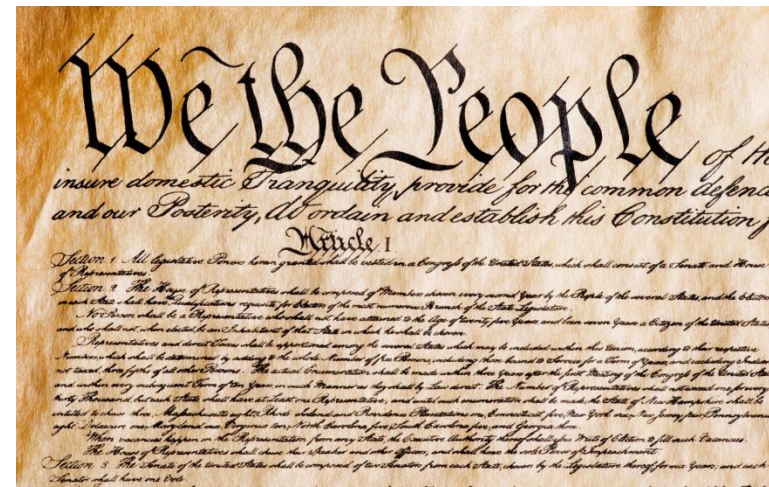 We the People of th
insure domestic Tranquility, provide for the common defenc
and our Posterity, do ordain and establish this Constitution f
Article. I.
Section. 1. All legislative Powers herein granted shall be vested in a Congress of the United States, which shall consist of a Senate and House
of Representatives.
Section. 2. The House of Representatives shall be composed of Members chosen every second Year by the People of the several States, and the Electors
in each State shall have Qualifications requisite for Electors of the most numerous Branch of the State Legislature.
No Person shall be a Representative who shall not have attained to the Age of twenty five Years, and been seven Years a Citizen of the United States,
and who shall not, when elected, be an Inhabitant of that State in which he shall be chosen.
Representatives and direct Taxes shall be apportioned among the several States which may be included within this Union, according to their respective
Numbers, which shall be determined by adding to the whole Number of free Persons, including those bound to Service for a Term of Years, and excluding Indians
not taxed, three fifths of all other Persons. The actual Enumeration shall be made within three Years after the first Meeting of the Congress of the United States,
and within every subsequent Term of ten Years, in such Manner as they shall by Law direct. The Number of Representatives shall not exceed one for every
thirty Thousand, but each State shall have at Least one Representative; and until such enumeration shall be made, the State of New Hampshire shall be
entitled to chuse three, Massachusetts eight, Rhode Island and Providence Plantations one, Connecticut five, New York six, New Jersey four, Pennsylvania
eight, Delaware one, Maryland six, Virginia ten, North Carolina five, South Carolina five, and Georgia three.
When vacancies happen in the Representation from any State, the Executive Authority thereof shall issue Writs of Election to fill such Vacancies.
The House of Representatives shall chuse their Speaker and other Officers; and shall have the sole Power of Impeachment.
Section. 3. The Senate of the United States shall be composed of two Senators from each State, chosen by the Legislature thereof, for six Years; and each
Senator shall have one Vote.